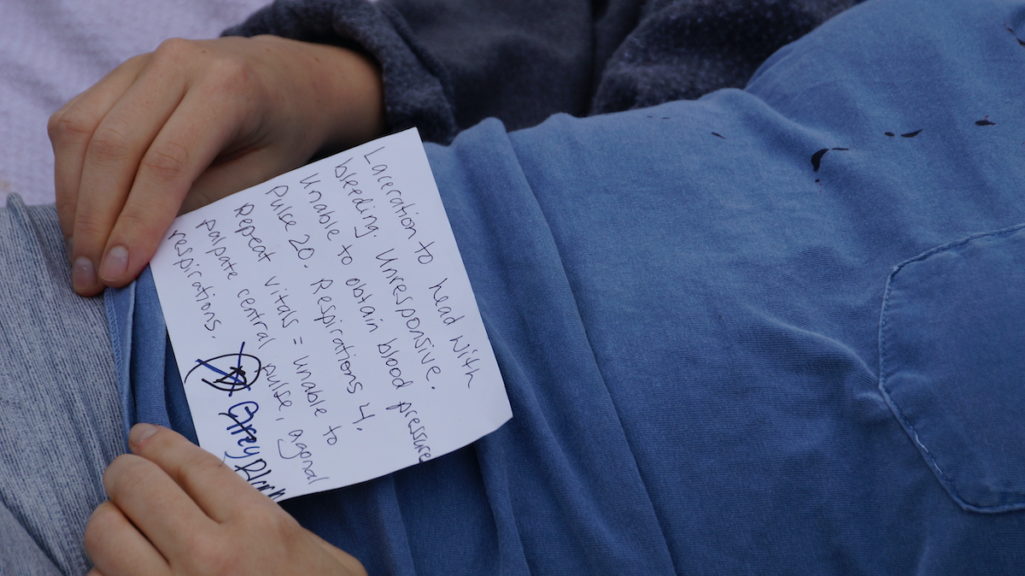 Laceration to head with
bleeding. Unresponsive.
Unable to obtain blood pressure
Pulse 20. Respirations 4.
Repeat vitals = unable to
palpate central pulse, agonal
respirations.
Grey